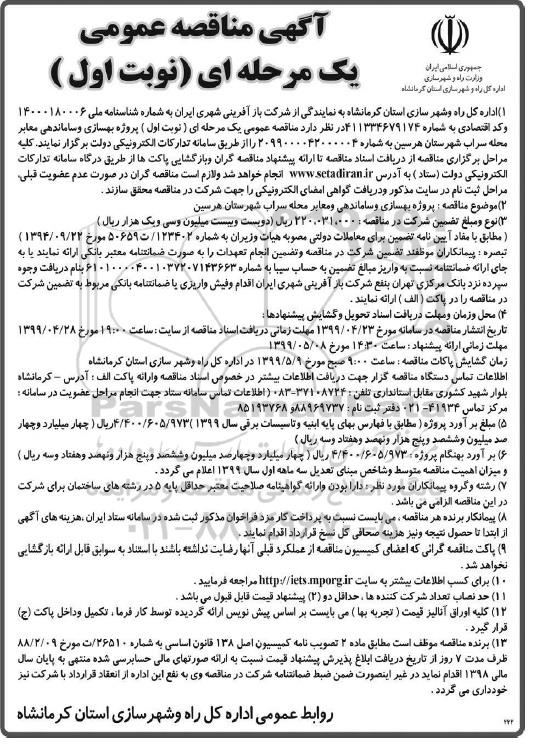 آگهی مناقصه عمومی
یک مرحله ای (نوبت اول)
جمهوری اسلامی ایران
وزارت راه و شهرسازی
اداره کل راه و شهرسازی استان کرمانشاه
۱)اداره کل راه وشهر سازی استان کرمانشاه به نمایندگی از شرکت باز آفرینی شهری ایران به شماره شناسنامه ملی ۱۴۰۰۰۱۸۰۰۰۶
وکد اقتصادی به شماره ۴۱۱۳۳۴۶۷۹۱۷۴در نظر دارد مناقصه عمومی یک مرحله ای ( نوبت اول ) پروژه بهسازی وساماندهی معابر
محله سراب شهرستان هرسین به شماره ۲۰۹۹۰۰۰۰۴۲۰۰۰۰۰۴ را از طریق سامانه تدارکات الکترونیکی دولت برگزار نمایند. کلیه
مراحل برگزاری مناقصه از دریافت اسناد مناقصه تا ارائه پیشنهاد مناقصه گران وبازگشایی پاکت ها از طریق درگاه سامانه تدارکات
الکترونیکی دولت (ستاد ) به آدرس www.setadiran.ir انجام خواهد شد ولازم است مناقصه گران در صورت عدم عضویت قبلی،
مراحل ثبت نام در سایت مذکور ودریافت گواهی امضای الکترونیکی را جهت شرکت در مناقصه محقق سازند .
۲)موضوع مناقصه : پروژه بهسازی وساماندهی ومعابر محله سراب شهرستان هرسین
۳)نوع ومبلغ تضمین شرکت در مناقصه : ۲۲۰،۰۳۱،۰۰۰ ریال (دویست وبیست میلیون وسی ویک هزار ریال )
( مطابق با مفاد آیین نامه تضمین برای معاملات دولتی مصوبه هیات وزیران به شماره ۱۲۳۴۰۲/ ت۵۰۶۵۹ مورخ ۱۳۹۴/۰۹/۲۲ )
تبصره : پیمانکاران موظفند تضمین شرکت در مناقصه وتضمین انجام تعهدات را به صورت ضمانتنامه معتبر بانکی ارائه نمایند یا به
جای ارائه ضمانتنامه نسبت به واریز مبالغ تضمین به حساب سیبا به شماره ۴۰۰۱۰۳۷۲۰۷۱۴۳۶۶۳ بنام دریافت وجوه
سپرده نزد بانک مرکزی تهران بنفع شرکت باز آفرینی شهری ایران اقدام وفیش واریزی یا ضمانتنامه بانکی مربوط به تضمین شرکت
در مناقصه را در پاکت ( الف ) ارائه نمایند .
۴) محل وزمان ومهلت دریافت اسناد تحویل وگشایش پیشنهادها :
تاریخ انتشار مناقصه در سامانه مورخ ۱۳۹۹/۰۴/۲۳ مهلت زمانی دریافت اسناد مناقصه از سایت : ساعت ۱۹:۰۰ مورخ ۱۳۹۹/۰۴/۲۸
مهلت زمانی ارائه پیشنهاد : ساعت ۱۴:۳۰ مورخ ۱۳۹۹/۰۵/۰۸
زمان گشایش پاکات مناقصه : ساعت ۹:۰۰ صبح مورخ ۱۳۹۹/۵/۹ در اداره کل راه وشهر سازی استان کرمانشاه
اطلاعات تماس دستگاه مناقصه گزار جهت دریافت اطلاعات بیشتر در خصوص اسناد مناقصه وارائه پاکت الف : آدرس – کرمانشاه
بلوار شهید کشوری مقابل استانداری تلفن : ۳۷۱۰۸۷۲۴-۰۸۳ (اطلاعات تماس سامانه ستاد جهت انجام مراحل عضویت در سامانه :
مرکز تماس ۴۱۹۳۴-۰۲۱ دفتر ثبت نام : ۸۸۹۶۹۷۳۷و ۸۵۱۹۳۷۶۸
۵) مبلغ بر آورد پروژه ( مطابق با فهارس بهای پایه ابنیه وتاسیسات برقی سال ۱۳۹۹ )۴/۴۰۰/۶۰۵/۹۷۳ریال ( چهار میلیارد وچهار
صد میلیون وششصد وپنج هزار ونهصد وهفتاد وسه ریال )
۶) بر آورد بهنگام پروژه : ۴/۴۰۰/۶۰۵/۹۷۳ ریال ( چهار میلیارد وچهارصد میلیون وششصد وپنج هزار ونهصد وهفتاد وسه ریال )
و میزان اهمیت مناقصه متوسط وشاخص مبنای تعدیل سه ماهه اول سال ۱۳۹۹ اعلام می گردد .
۷) رشته وگروه پیمانکاران مورد نظر : دارا بودن وارائه گواهینامه صلاحیت معتبر حداقل پایه ۵ در رشته های ساختمان برای شرکت
در این مناقصه الزامی می باشد .
۸) پیمانکار برنده هر مناقصه ، می بایست نسبت به پرداخت کار مزد فراخوان مذکور ثبت شده در سامانه ستاد ایران ،هزینه های آگهی
از ابتدا تا حصول نتیجه ونیز هزینه صحافی کل نسخ قرارداد اقدام نمایند .
۹) پاکت مناقصه گرانی که اعضای کمیسیون مناقصه از عملکرد قبلی آنها رضایت نداشته باشند با استناد به سوابق قابل ارائه بازگشایی
نخواهد شد .
۱۰) برای کسب اطلاعات بیشتر به سایت http://iets.mporg.ir مراجعه فرمایید .
۱۱) حد نصاب تعداد شرکت کننده ها ، حداقل دو (۲) پیشنهاد قیمت قابل قبول می باشد .
۱۲) کلیه اوراق آنالیز قیمت ( تجربه بها ) می بایست بر اساس پیش نویس ارائه گردیده توسط کار فرما ، تکمیل وداخل پاکت (ج)
قرار گیرد .
۱۳) برنده مناقصه موظف است مطابق ماده ۲ تصویب نامه کمیسیون اصل ۱۳۸ قانون اساسی به شماره ۲۶۵۱۰/ت مورخ ۸۸/۲/۰۹
ظرف مدت ۷ روز از تاریخ دریافت ابلاغ پذیرش پیشنهاد قیمت نسبت به ارائه صورتهای مالی حسابرسی شده منتهی به پایان سال
مالی ۱۳۹۸ اقدام نماید در غیر اینصورت ضمن ضبط ضمانتنامه شرکت در مناقصه وی به نفع این اداره از انعقاد قرارداد با شرکت نیز
خودداری می گردد .
روابط عمومی اداره کل راه وشهرسازی استان کرمانشاه
۲۴۲
ParsNamadData
۰۲۱-۸۸۳۴۹۶۷۰